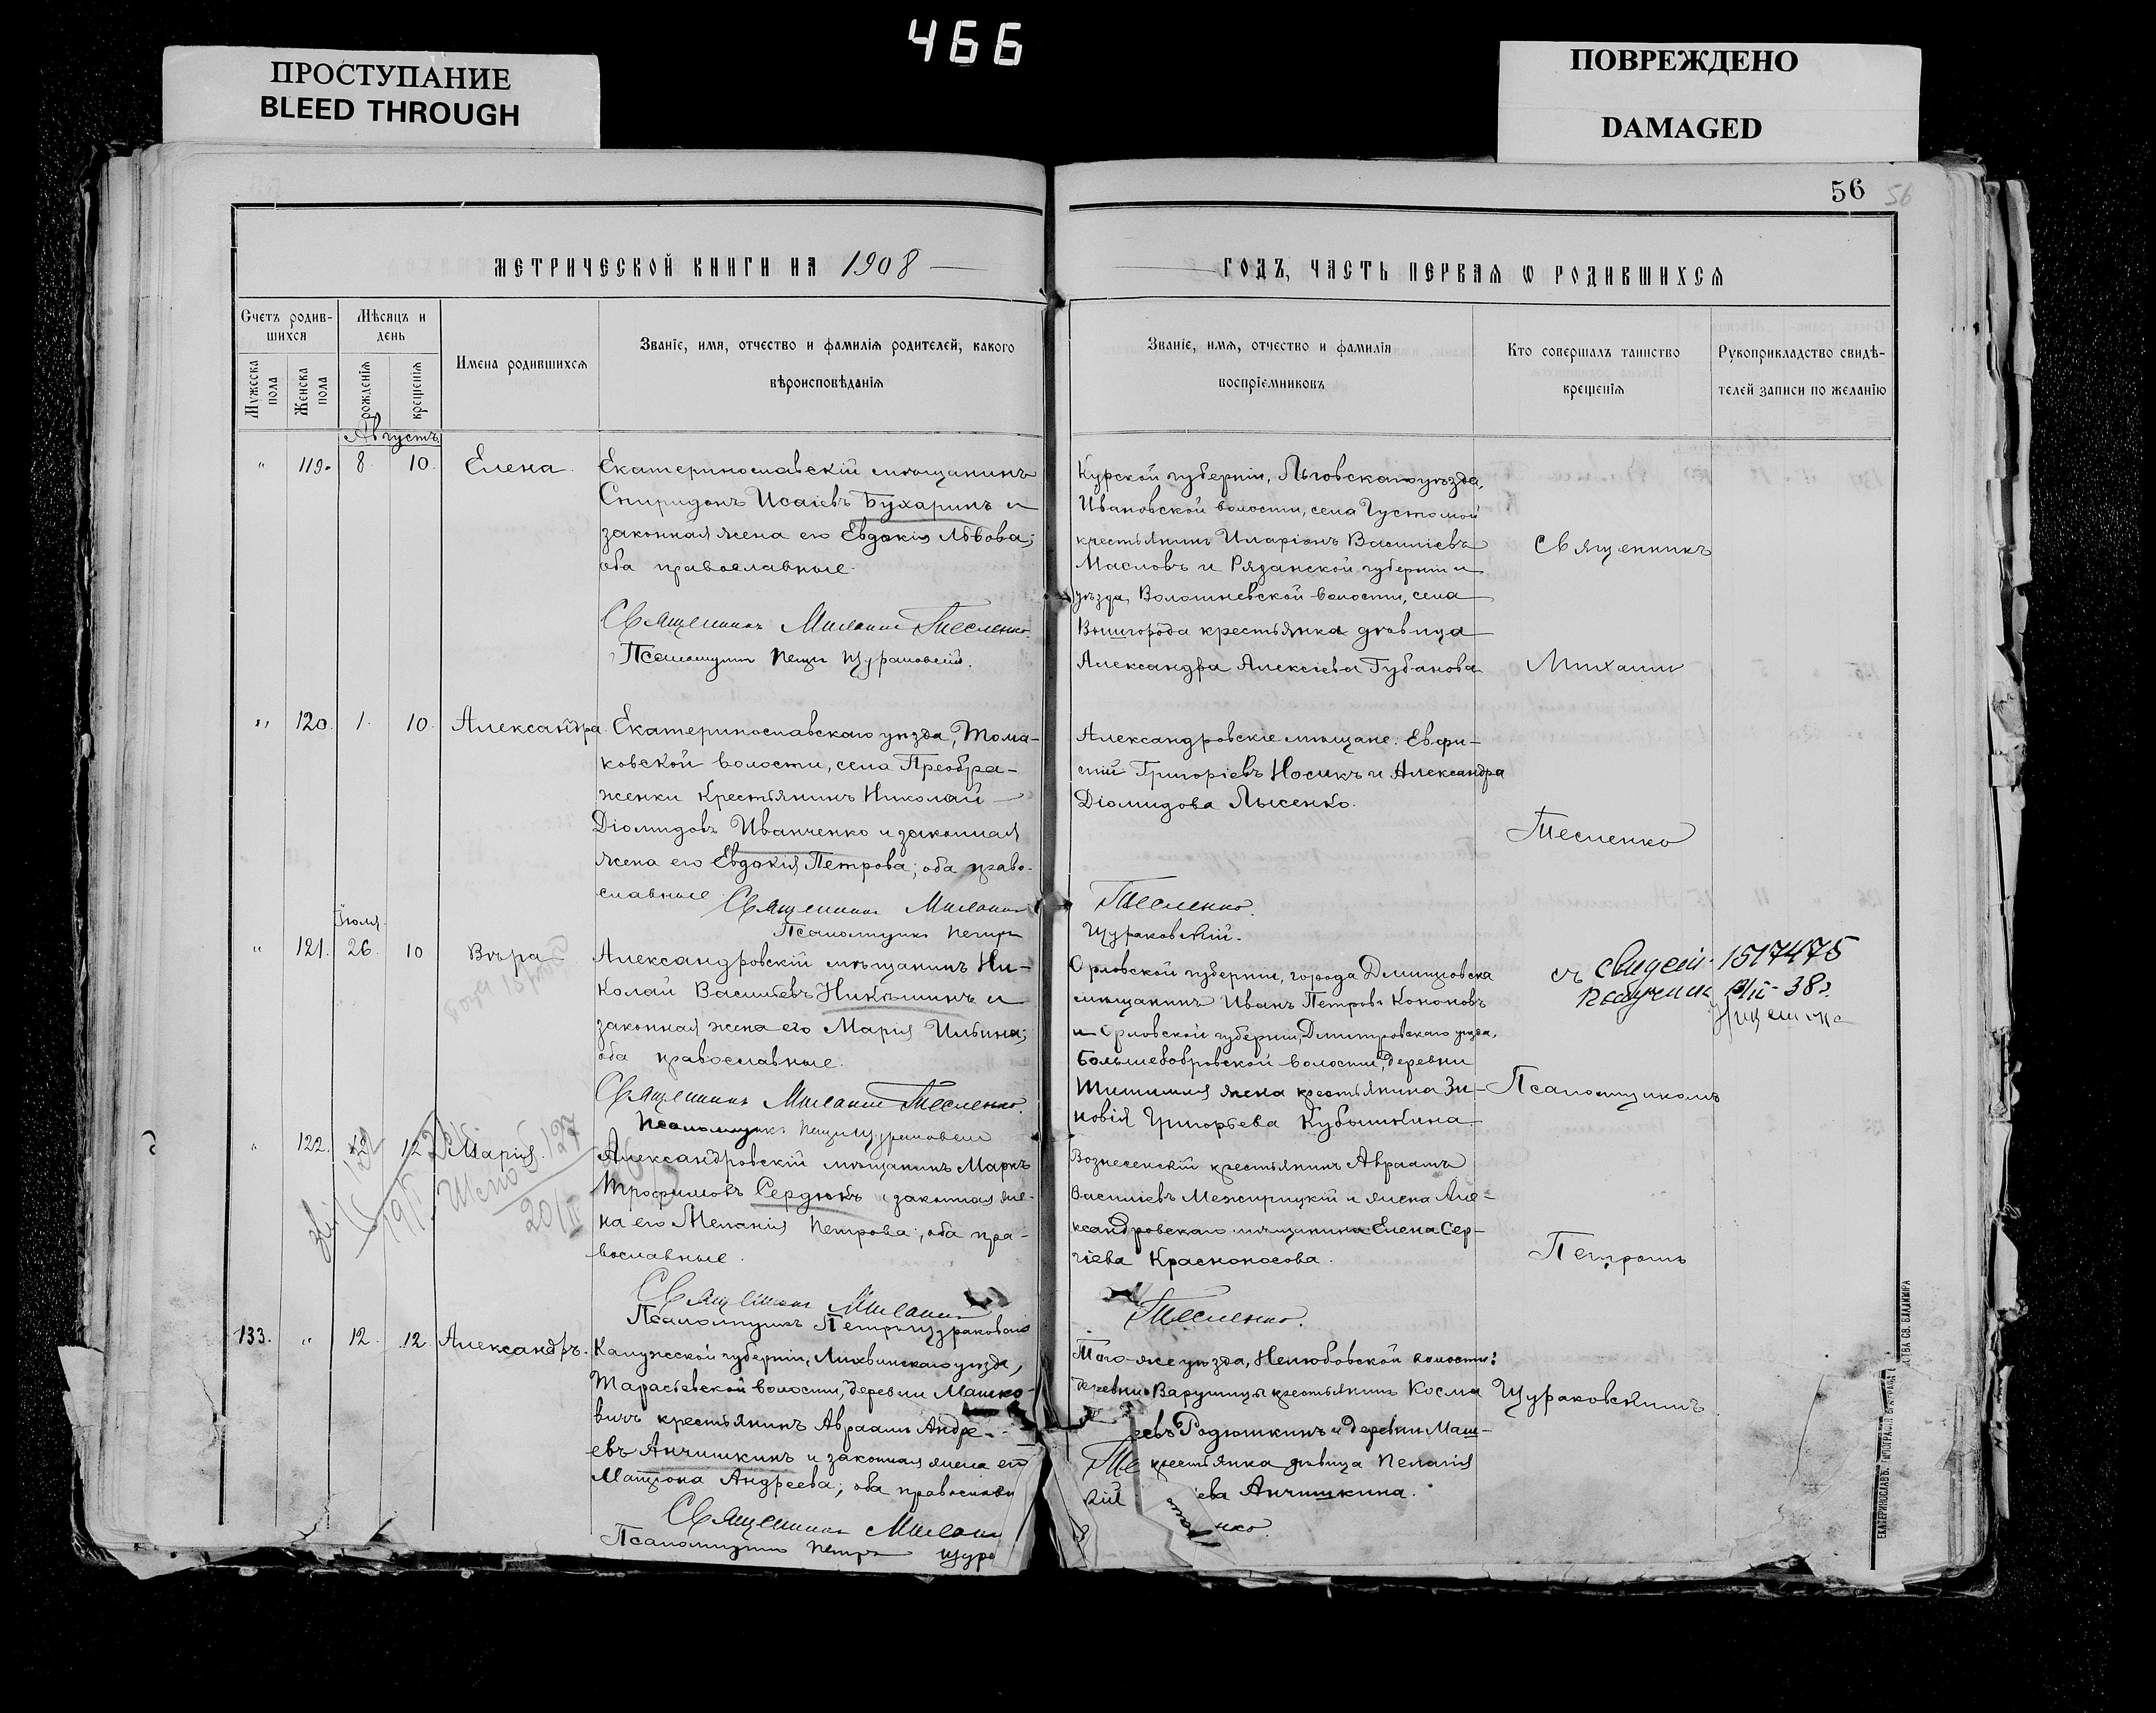 466
ПРОСТУПАНИЕ
BLEED THROUGH
ПОВРЕЖДЕНО
DAMAGED
56
56
МЕТРИЧЕСКОЙ КНИГИ НА 1908
ГОДЪ, ЧАСТЬ ПЕРВАЯ Ѡ РОДИВШИХСЯ
Счетъ родив-
шихся
Мужеска
пола
Женска
пола
Мѣсяцъ и
день
рожденія
крещенія
Имена родившихся
Званіе, имя, отчество и фамилія родителей, какого
вѣроисповѣданія
Званіе, имя, отчество и фамилія
воспріемниковъ
Кто совершалъ таинство
крещенія
Рукоприкладство свидѣ-
телей записи по желанію
Августъ
" 119. 8. 10. Елена
Екатеринославскій мѣщанинъ
Спиридонъ Исаіевъ Бухаринъ и
законная жена его Евдокія Львова;
оба православные.
Священникъ Михаилъ Тесленко.
Псаломщикъ Петръ Щураковскій.
Курской губерніи, Льговскаго уѣзда,
Ивановской волости, села Густомой
крестьянинъ Иларіонъ Василіевъ
Масловъ и Рязанской губерніи и
уѣзда, Волошневской волости, села
Вышгорода крестьянка дѣвица
Александра Алексіева Губанова
Священникъ
Михаилъ
" 120. 1. 10. Александра
Екатеринославскаго уѣзда, Тома-
ковской волости, села Преобра-
женки крестьянинъ Николай
Діомидовъ Иванченко и законная
жена его Евдокія Петрова; оба право-
славные
Священникъ Михаилъ
Псаломщикъ Петръ
Александровскіе мѣщане: Евфи-
мій Григоріевъ Носикъ и Александра
Діомидова Лысенко.
Тесленко
Тесленко.
Щураковскій.
Іюля
" 121. 26. 10 Вѣра
Александровскій мѣщанинъ Ни-
колай Васильевъ Никѣшинъ и
законная жена его Марія Ильина;
оба православные.
Священникъ Михаилъ Тесленко.
Псаломщикъ Петръ Щураковскій
Орловской губерніи, города Дмитровска
мѣщанинъ Иванъ Петровъ Кононовъ
и Орловской губерніи, Дмитровскаго уѣзда,
Большебобровской волости, деревни
жена крестьянина Зи-
новія Григорьева Кубышкина
1517475
38г.
Псаломщикомъ
" 122. 12 Марія.
Александровскій мѣщанинъ Маркъ
Трофимовъ Сердюкъ и законная же-
на его Меланія Петрова; оба пра-
вославные.
Священникъ Михаилъ
Псаломщикъ Петръ Щураковскій
Вознесенскій крестьянинъ Авраамъ
Василіевъ Межирицкій и жена Але-
ксандровскаго мѣщанина Елена Сер-
гіева Красноносова.
Петромъ
Тесленко.
133. " 12. 12 Александръ.
Калужской губерніи, Лихвинскаго уѣзда,
Тарасьевской волости, деревни Машко-
вичъ крестьянинъ Авраамъ Андре-
евъ Анчишкинъ и законная жена его
Матрона Андреева; оба православн
Священникъ Михаилъ
Псаломщикъ Петръ Щура
Того-же уѣзда, Нелюбовской волости:
деревни Варушицы крестьянинъ Косма
еевъ Родюшкинъ и деревни Маш-
крестьянка дѣвица Пелагія
ева Анчишкина.
нко.
Щураковскимъ.